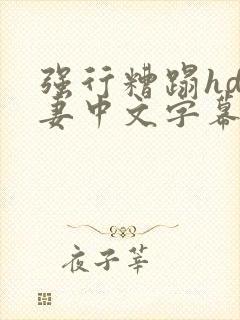 强行糟蹋hd
妻中文字幕
夜子莘